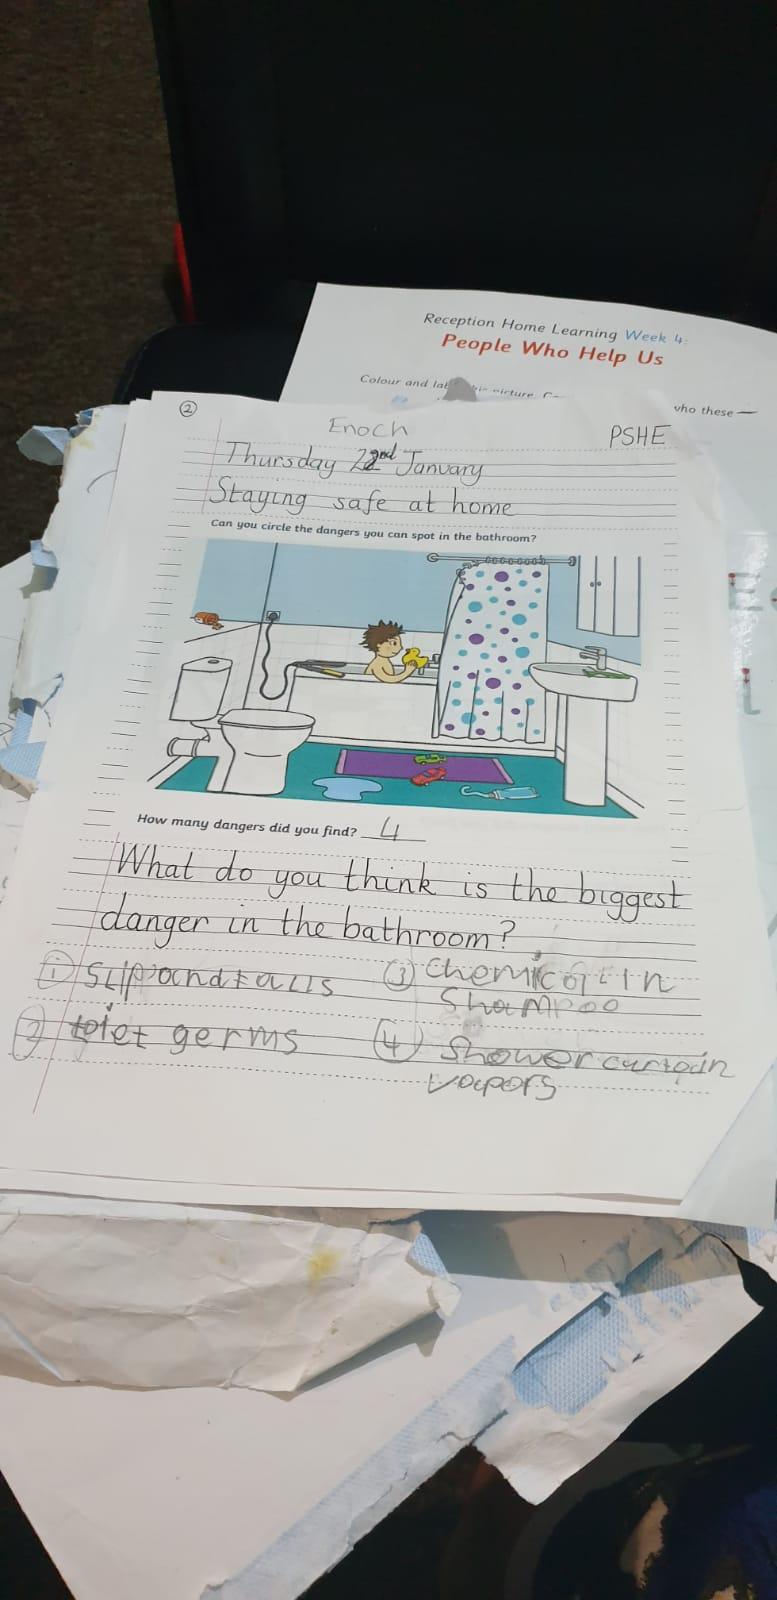 Reception Home Learning Week 4:
People Who Help Us
Colour and picture.
who these
2
Enoch
PSHE
Thursday 22nd January
Staying safe at home
Can you circle the dangers you can spot in the bathroom?
How many dangers did you find? 4
What do you think is the biggest
danger in the bathroom?
① Slip and Falls
③ Chemical in
Shampoo
② toilet germs
④ Shower curtain
vapors